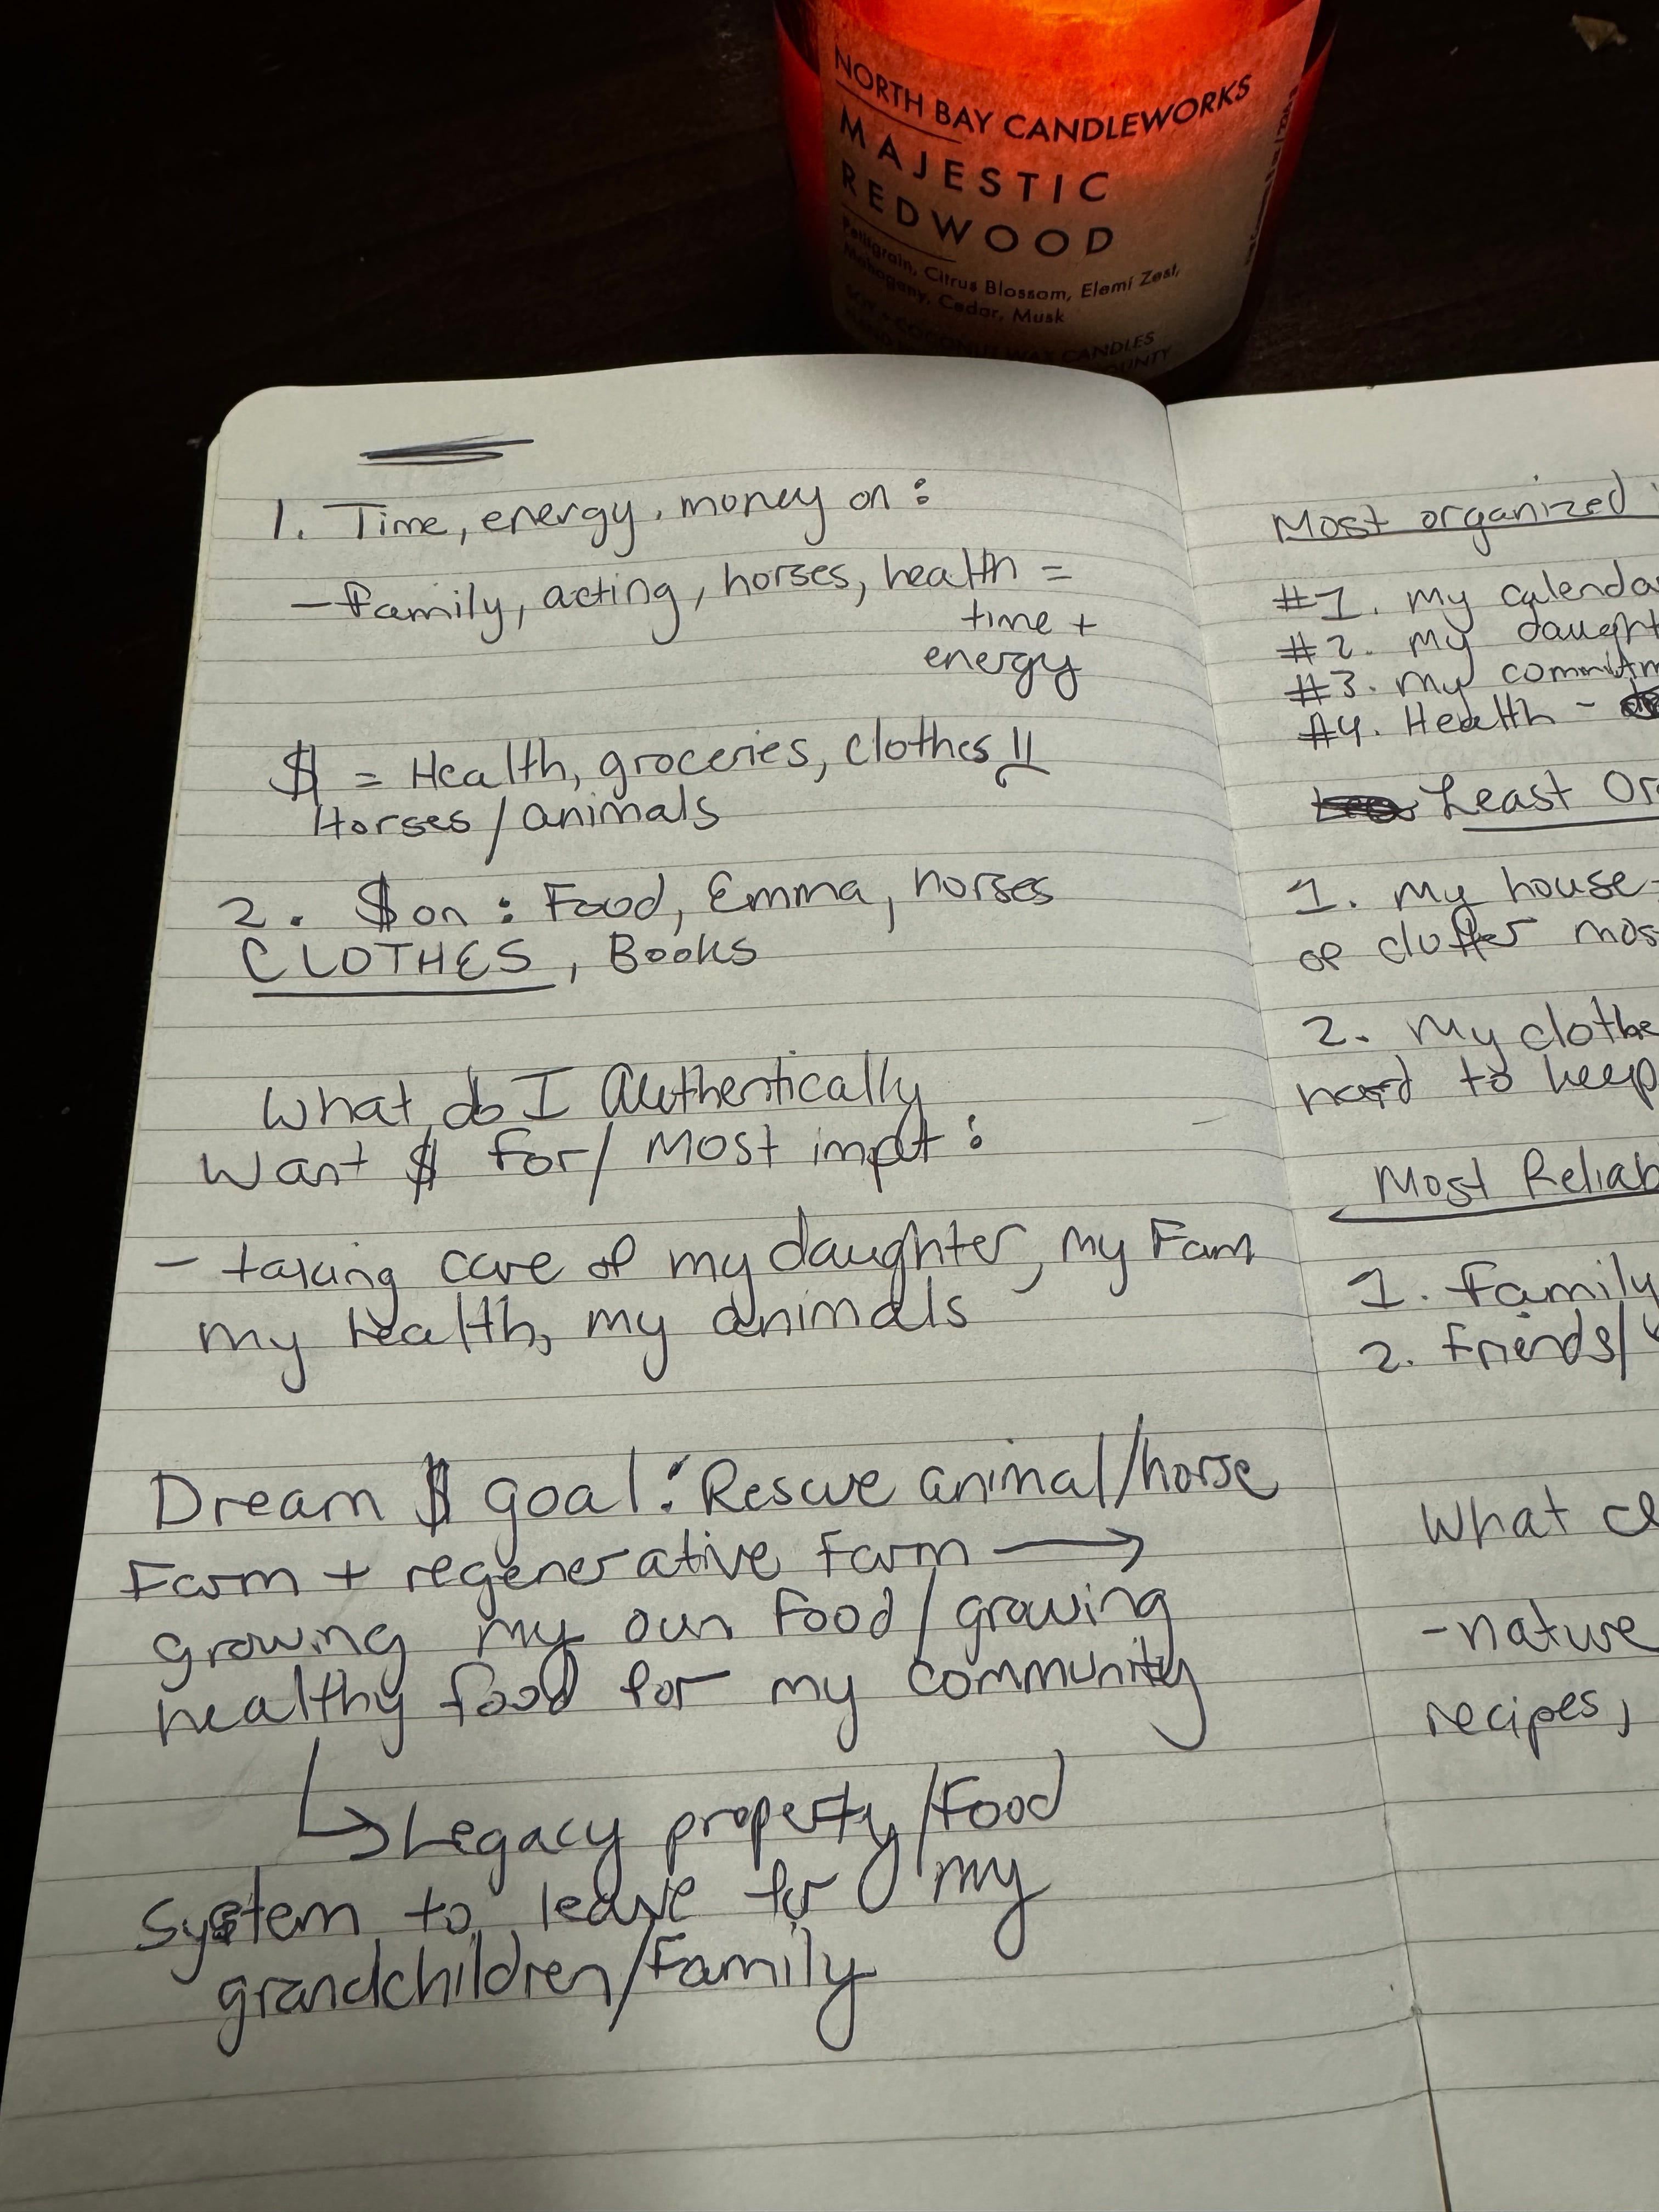 NORTH BAY CANDLEWORKS
MAJESTIC
REDWOOD
Petitgrain, Citrus Blossom, Elemi Zest,
Mahogany, Cedar, Musk
SOY + COCONUT WAX CANDLES
COUNTY
1. Time, energy, money on:
- Family, acting, horses, health =
time +
energy
$ = Health, groceries, clothes !!
Horses/animals
2. $ on: Food, Emma, horses
CLOTHES, Books
What do I Authentically
Want $ for/ Most impt:
- taking care of my daughter, my Fam
my health, my animals
Dream $ goal: Rescue animal/horse
Farm + regenerative Farm →
growing my own Food/growing
healthy food for my community
↳ Legacy property/Food
System to leave for my
grandchildren/Family
Most organized
#1. My calenda
#2. My daught
#3. My commitm
#4. Health -
Least Or
1. My house -
of clutter mos
2. My clothe
hard to keep
Most Reliab
1. Family
2. Friends/
What cl
- nature
recipes,